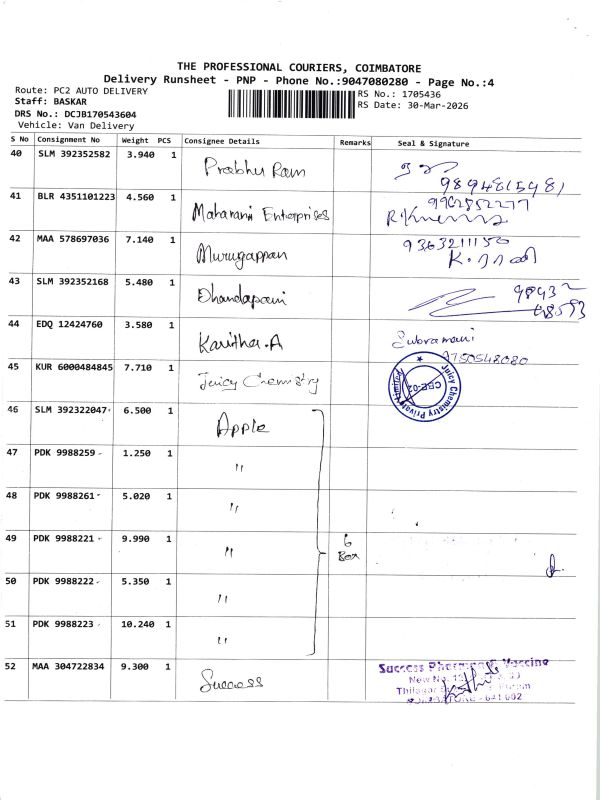 THE PROFESSIONAL COURIERS, COIMBATORE
Delivery Runsheet - PNP - Phone No.:9047080280 - Page No.:4
Route: PC2 AUTO DELIVERY
Staff: BASKAR
DRS No.: DCJB170543604
Vehicle: Van Delivery
RS No.: 1705436
RS Date: 30-Mar-2026
S No Consignment No Weight PCS Consignee Details Remarks Seal & Signature
40 SLM 392352582 3.940 1 Prabhu Ram
9894815981
41 BLR 4351101223 4.560 1 Maharani Enterprises
9962852277
42 MAA 578697036 7.140 1 Murugappan
9363211150
43 SLM 392352168 5.480 1 Dhandapani
98432
48593
44 EDQ 12424760 3.580 1 Kavitha.A Subramani
9750548080
45 KUR 6000484845 7.710 1 Juicy Chemistry
Juicy Chemistry Private Limited
CBE-02
46 SLM 392322047 6.500 1 Apple
47 PDK 9988259 1.250 1 "
48 PDK 9988261 5.020 1 "
49 PDK 9988221 9.990 1 " 6
Box
50 PDK 9988222 5.350 1 "
51 PDK 9988223 10.240 1 "
52 MAA 304722834 9.300 1 Success
Success Pharma Vaccine
New No.
COIMBATORE - 641 002